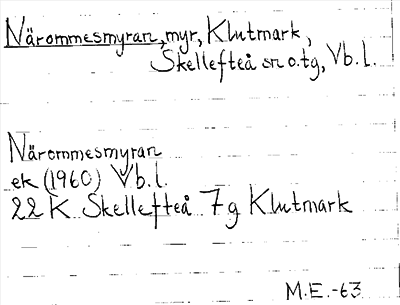 Närommesmyran, myr, Klutmark,
Skellefteå sn o. tg, Vb. l.
Närommesmyran
ek (1960) Vb. l.
22 K Skellefteå 7g Klutmark
M.E.-63